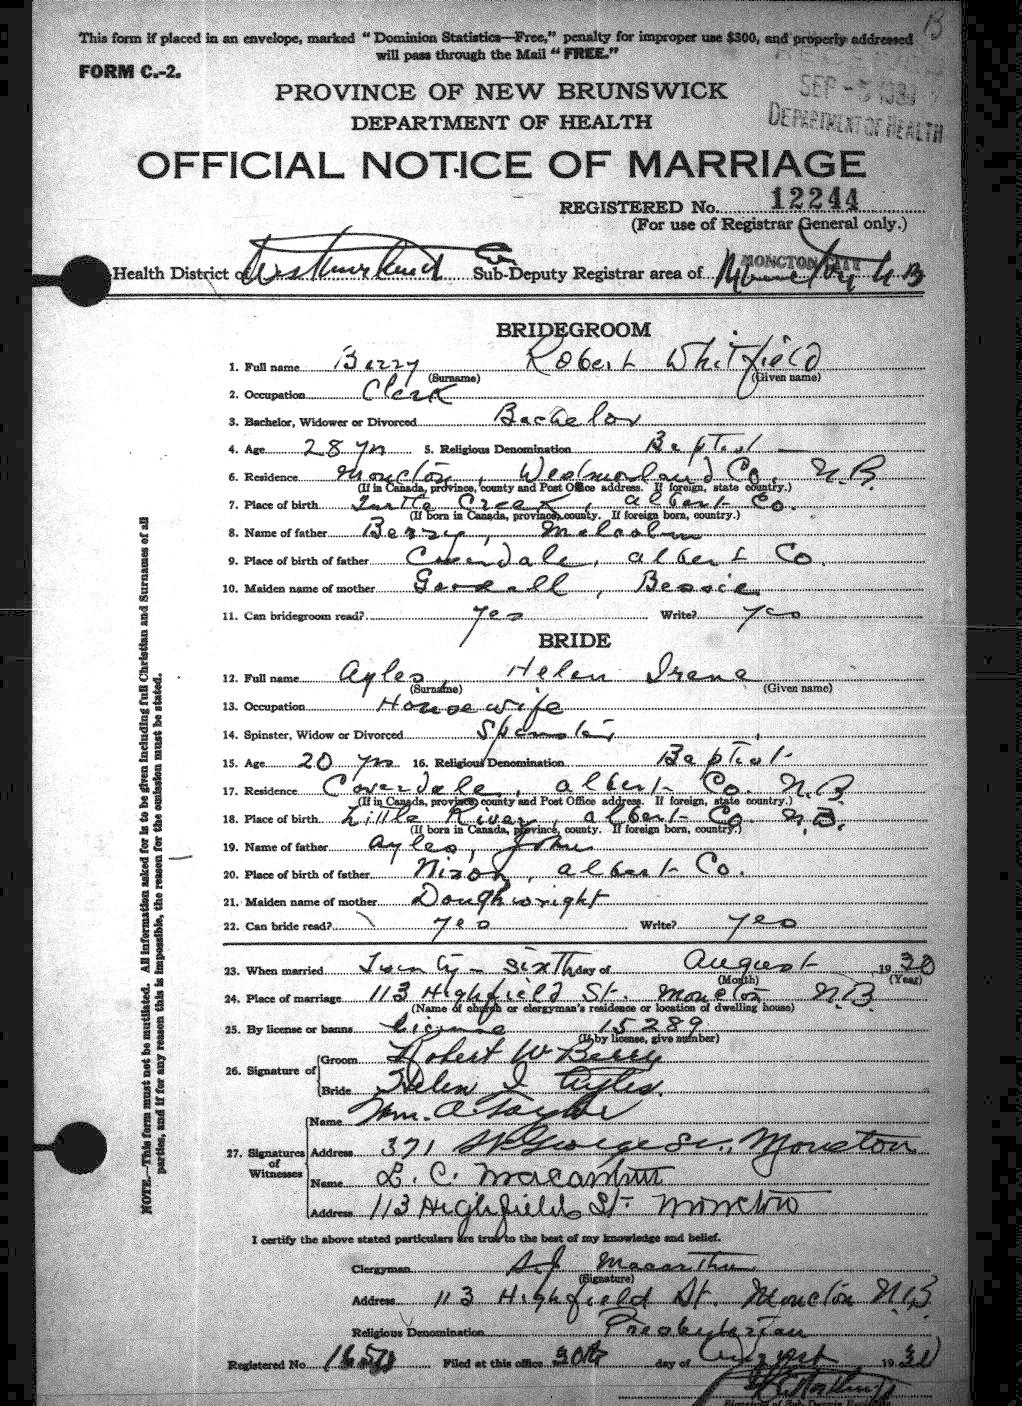 This form if placed in an envelope, marked "Dominion Statistics—Free," penalty for improper use $300, and properly addressed
will pass through the Mail "FREE."
FORM C.-2.
PROVINCE OF NEW BRUNSWICK
SEP
DEPARTMENT OF HEALTH
DEPARTMENT OF HEALTH
OFFICIAL NOTICE OF MARRIAGE
REGISTERED No. 12244
(For use of Registrar General only.)
MONCTON CITY
Health District of Westmorland Sub-Deputy Registrar area of Moncton N B
BRIDEGROOM
1. Full name Berry Robert Whitfield
(Surname) (Given name)
2. Occupation Clerk
3. Bachelor, Widower or Divorced Bachelor
4. Age 28 yrs 5. Religious Denomination Baptist
6. Residence Moncton, Westmorland Co. N.B.
(If in Canada, province, county and Post Office address. If foreign, state country.)
7. Place of birth Turtle Creek, Albert Co.
(If born in Canada, province, county. If foreign born, country.)
8. Name of father Berry, Malcolm
9. Place of birth of father Coverdale, Albert Co.
10. Maiden name of mother , Bessie
11. Can bridegroom read? yes Write? yes
BRIDE
12. Full name Ayles, Helen Irene
(Surname) (Given name)
13. Occupation Housewife
14. Spinster, Widow or Divorced Spinster
15. Age 20 yrs 16. Religious Denomination Baptist
17. Residence Coverdale, Albert Co. N.B.
(If in Canada, province, county and Post Office address. If foreign, state country.)
18. Place of birth Little River, Albert Co. N.B.
(If born in Canada, province, county. If foreign born, country.)
19. Name of father Ayles, John
20. Place of birth of father Nixon, Albert Co.
21. Maiden name of mother Doughwright
22. Can bride read? yes Write? yes
23. When married Twenty-sixth day of August 1930
(Month) (Year)
24. Place of marriage 113 Highfield St. Moncton N.B.
(Name of church or clergyman's residence or location of dwelling house)
25. By license or banns License 15289
(If by license, give number)
26. Signature of
Groom Robert W Berry
Bride Helen I Ayles.
27. Signatures of Witnesses
Name Wm. A. Taylor
Address 371 St. George St., Moncton
Name L. C. Macarthur
Address 113 Highfield St. Moncton
I certify the above stated particulars are true to the best of my knowledge and belief.
Clergyman Macarthur
(Signature)
Address 113 Highfield St. Moncton N.B
Religious Denomination Presbyterian
Registered No. Filed at this office 30th day of August 1930
NOTE.—This form must not be mutilated. All information asked for is to be given including full Christian and Surnames of all
parties, and if for any reason this is impossible, the reason for the omission must be stated.